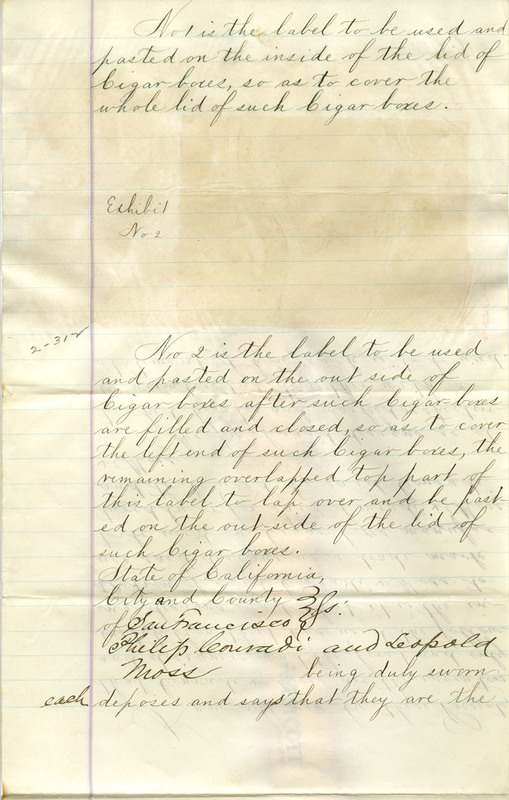 No 1 is the label to be used and
pasted on the inside of the lid of
Cigar boxes, so as to cover the
whole lid of such Cigar boxes.
Exhibit
No 2
2-312
No 2 is the label to be used
and pasted on the out side of
Cigar boxes after such Cigar boxes
are filled and closed, so as to cover
the left end of such Cigar boxes, the
remaining overlapped top part of
this label to lap over and be past-
ed on the out side of the lid of
such Cigar boxes.
State of California,
City and County } ss:
of San Francisco
Philip Conradi and Leopold
Moss being duly sworn
each deposes and says that they are the